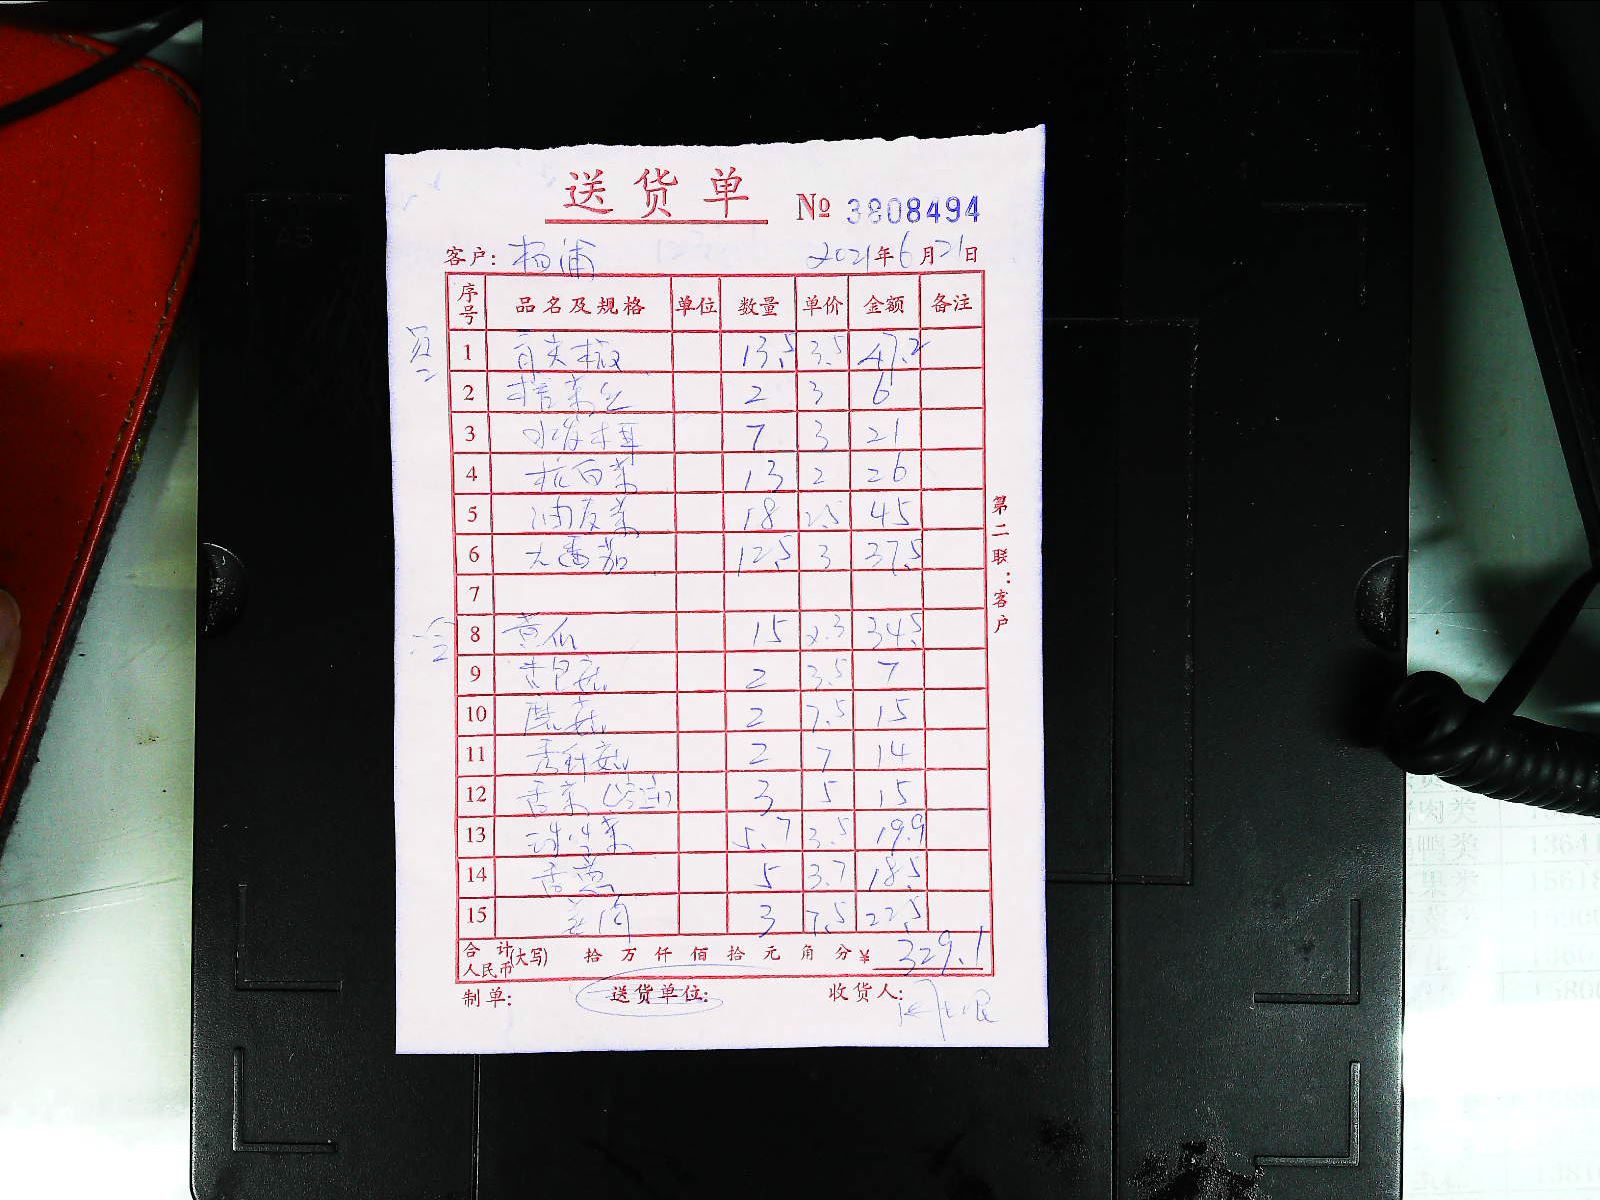 送货单 № 3808494
客户: 杨浦 2021年6月21日
序号 品名及规格 单位 数量 单价 金额 备注
1 青尖椒 13.5 3.5 47.2
2 榨菜丝 2 3 6
3 水发木耳 7 3 21
4 杭白菜 13 2 26
5 油麦菜 18 2.5 45
6 大番茄 12.5 3 37.5
7
8 黄瓜 15 2.3 34.5
9 杏鲍菇 2 3.5 7
10 蘑菇 2 7.5 15
11 秀珍菇 2 7 14
12 香菜 3 5 15
13 5.7 3.5 19.9
14 香葱 5 3.7 18.5
15 3 7.5 22.5
合计人民币(大写) 拾 万 仟 佰 拾 元 角 分 ¥ 329.1
制单: 送货单位: 收货人:
第二联:客户
A5
肉类
鸭类 13641